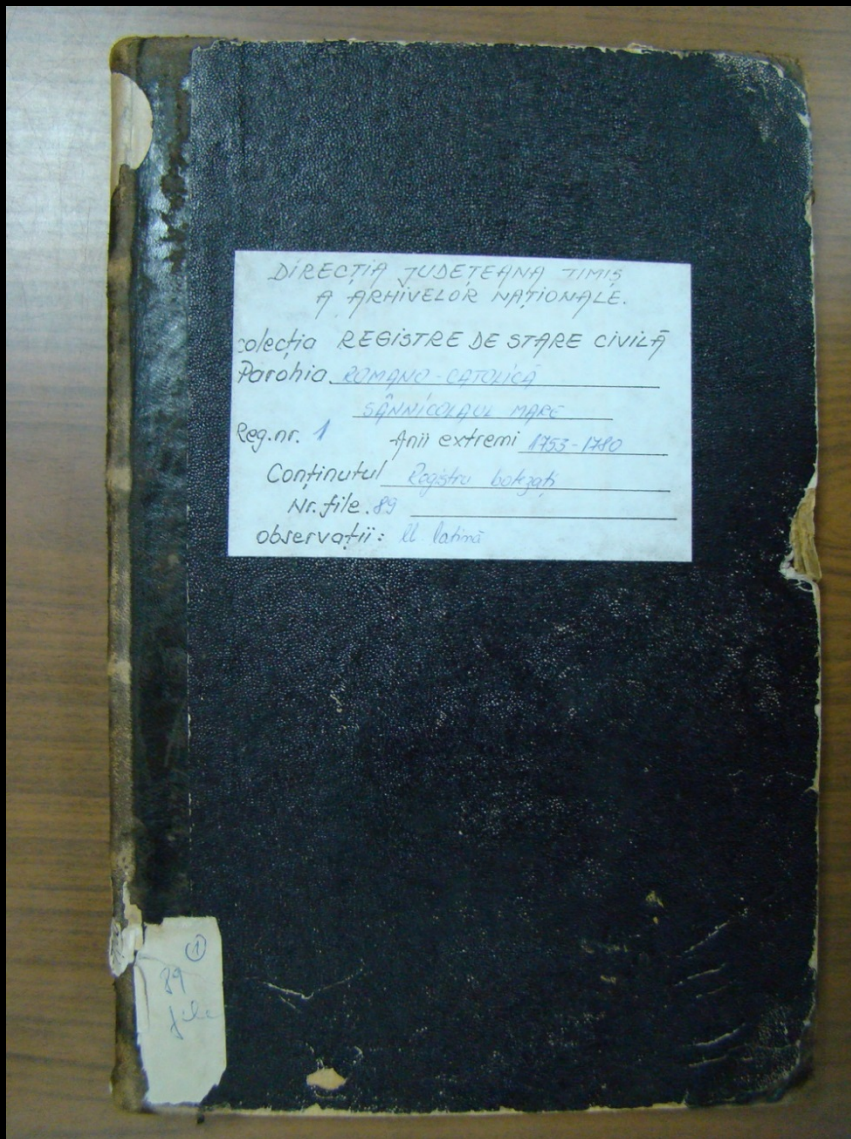 DIRECȚIA JUDEȚEANA TIMIȘ
A ARHIVELOR NAȚIONALE.
colecția REGISTRE DE STARE CIVILĂ
Parohia ROMANO-CATOLICĂ
SÂNNICOLAUL MARE
Reg. nr. 1 Anii extremi 1753-1780
Conținutul Registru botezați
Nr. file. 89
observații: lb. latină
1
89
file